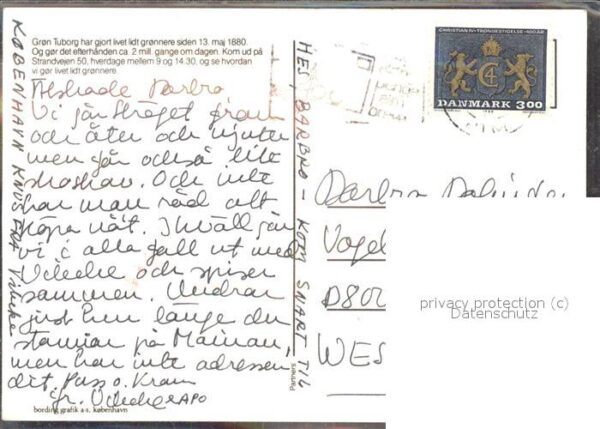 Grøn Tuborg har gjort livet lidt grønnere siden 13. maj 1880.
Og gør det efterhånden ca. 2 mill. gange om dagen. Kom ud på
Strandvejen 50, hverdage mellem 9 og 14.30, og se hvordan
vi gør livet lidt grønnere.
Älskade Barbro
Vi går Ströget fram
och äter och njuter
men går också lite
. Och inte
har man råd att
köpa nåt. Ikväll går
vi i alla fall ut med
Vibeke och spiser
sammen. Undrar
just hur länge du
stannar på Mainau,
men har inte adressen
dit. Puss o. Kram
fr. Vibeke & APO
bording grafik a·s. københavn
KØBENHAVN KNUS FRA Vibeke
HEJ, BARBRO - KOM SNART TIL
CHRISTIAN IV·TRONBESTIGELSE·400 ÅR
C4
DANMARK 3.00
Barbro
Vogel
D800
WES
privacy protection (c)
Datenschutz